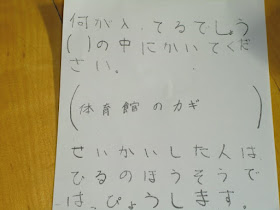 何が入ってるでしょう
( )の中にかいてくだ
さい。
(体育館のカギ)
せいかいした人は
ひるのほうそうで
はっぴょうします。